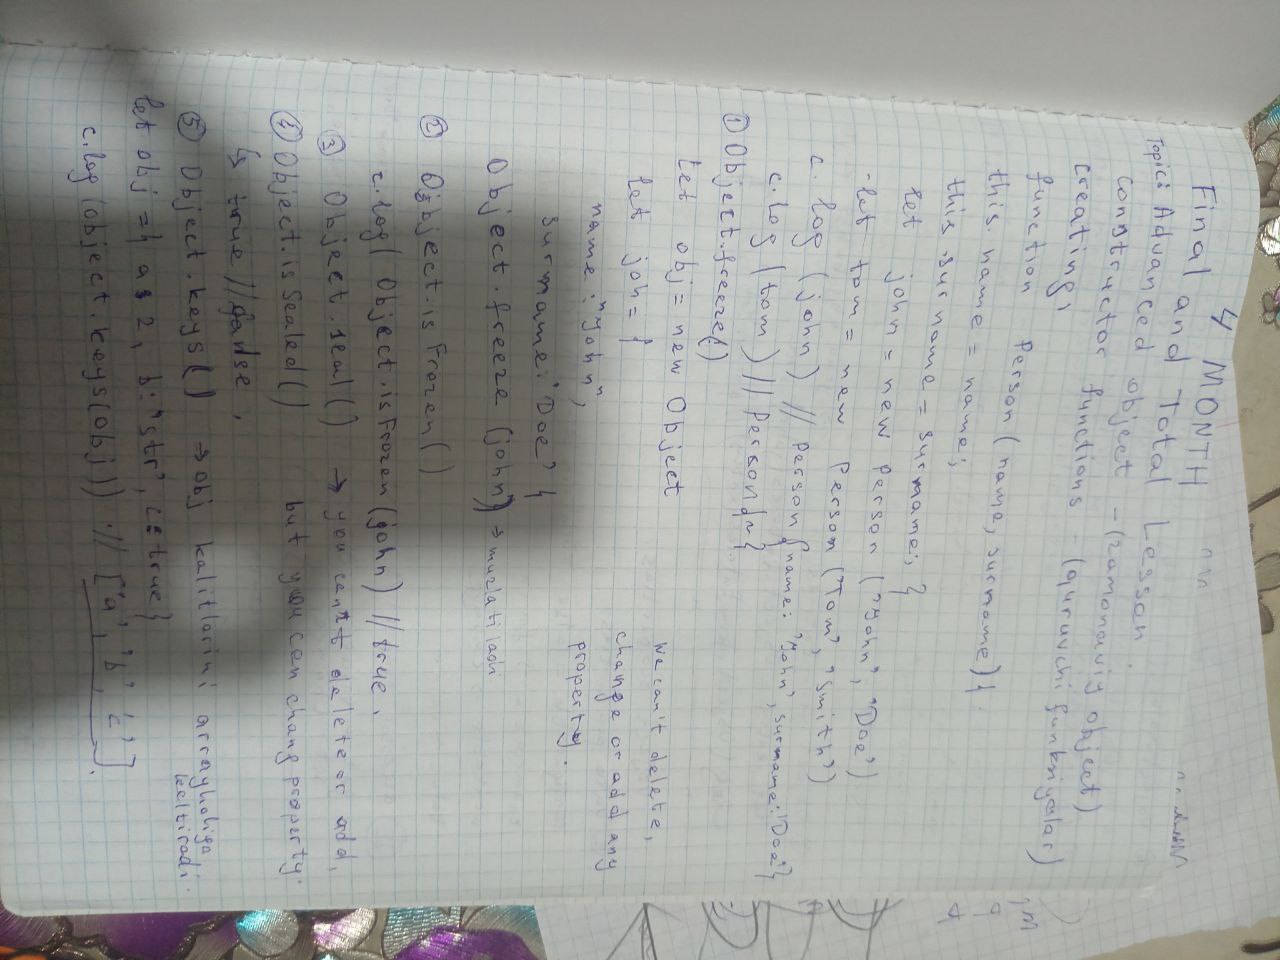 4 MONTH
Final and Total Lesson
Topic: Advanced object - (zamonaviy object)
constructor functions - (quruvchi funksiyalar)
Creating,
function Person (name, surname) {
this. name = name;
this. surname = surname; }
let john = new Person ("John", "Doe")
- let tom = new Person ("Tom", "Smith")
c. log (john) // Person {name: "John", surname: "Doe"}
c. log (tom) // Person {~}
① Object.freeze()
let obj = new Object
let joh = {
name: "John",
surname: "Doe" }
We can't delete,
change or add any
property.
Object. freeze (john) → muzlatiladi
② Object. is Frozen ( )
c. log( Object. isFrozen (john) // true,
③ Object. seal() → you can't delete or add,
but you can chang property.
④ Object. is Sealed()
↳ true // false,
⑤ Object. keys( ) → obj kalitlarini array holiga
keltiradi.
let obj = { a: 2, b: "str", c: true}
c. log (object. keys(obj)) // ["a", "b", "c"].